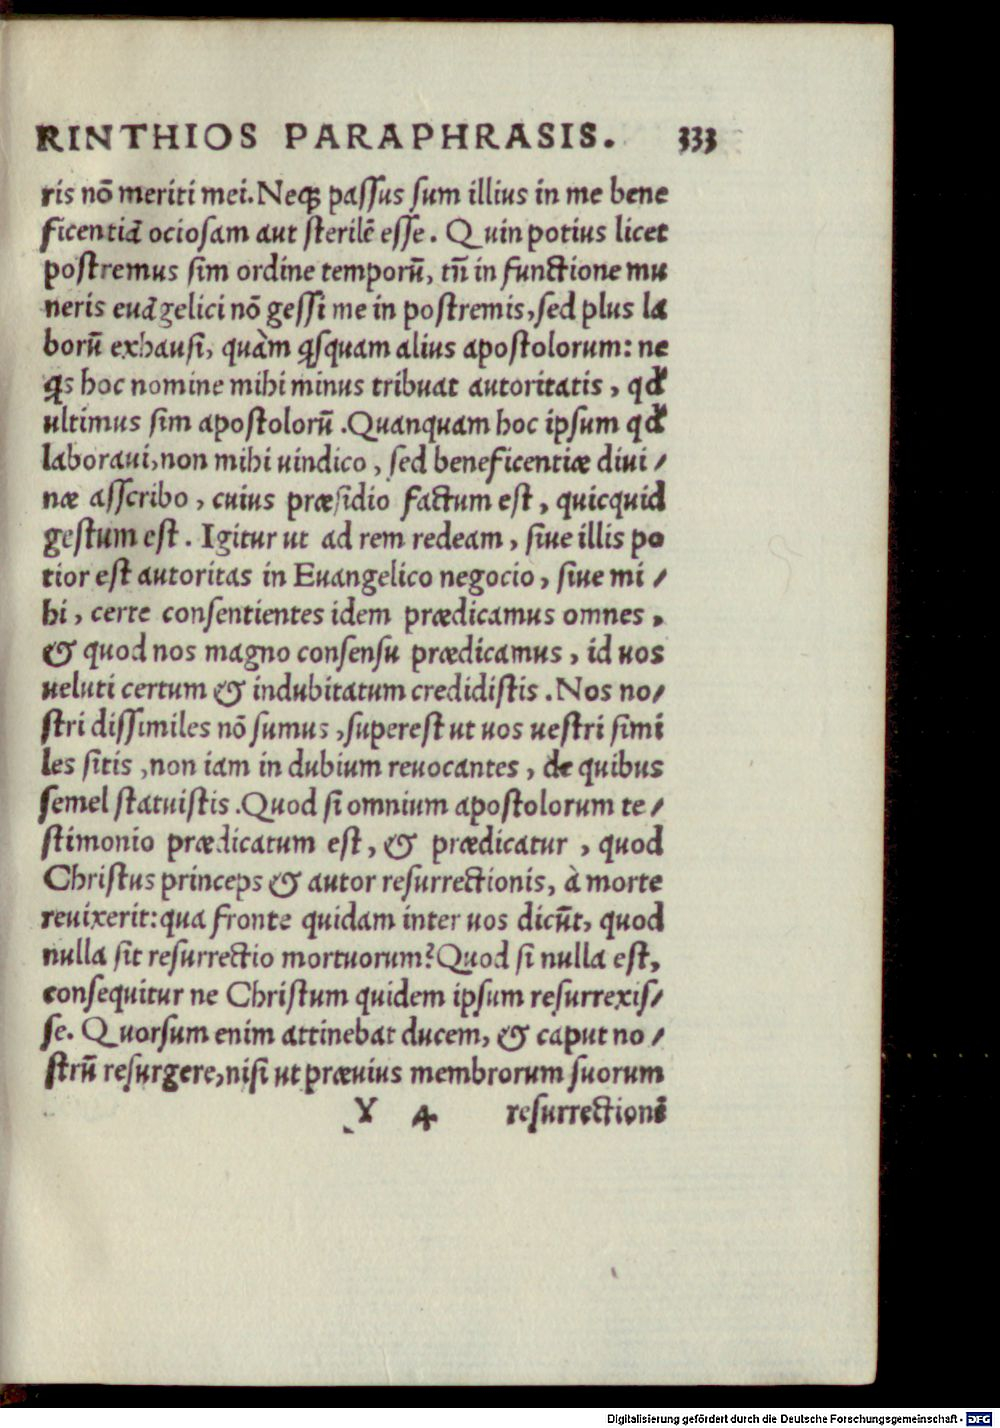 RINTHIOS PARAPHRASIS. 333
ris nõ meriti mei. Neqꝫ passus sum illius in me bene
ficentiã ociosam aut sterilẽ esse. Quin potius licet
postremus sim ordine temporũ, tñ in functione mu
neris euãgelici nõ gessi me in postremis, sed plus la
borũ exhausi, quàm ꝗsquam alius apostolorum: ne
ꝗs hoc nomine mihi minus tribuat autoritatis, qđ
ultimus sim apostolorũ. Quanquam hoc ipsum qđ
laboraui, non mihi uindico, sed beneficentiæ diui/
næ asscribo, cuius præsidio factum est, quicquid
gestum est. Igitur ut ad rem redeam, siue illis po
tior est autoritas in Euangelico negocio, siue mi/
hi, certe consentientes idem prædicamus omnes,
& quod nos magno consensu prædicamus, id uos
ueluti certum & indubitatum credidistis. Nos no/
stri dissimiles nõ sumus, superest ut uos uestri simi
les sitis, non iam in dubium reuocantes, de quibus
semel statuistis. Quod si omnium apostolorum te/
stimonio prædicatum est, & prædicatur, quod
Christus princeps & autor resurrectionis, à morte
reuixerit: qua fronte quidam inter uos dicũt, quod
nulla sit resurrectio mortuorum? Quod si nulla est,
consequitur ne Christum quidem ipsum resurrexis/
se. Quorsum enim attinebat ducem, & caput no/
strũ resurgere, nisi ut præuius membrorum suorum
Y 4 resurrectionẽ
Digitalisierung gefördert durch die Deutsche Forschungsgemeinschaft - DFG